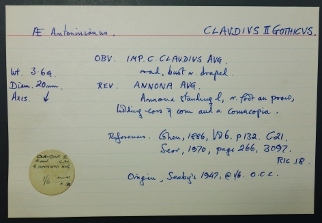 Æ Antoninianus.
CLAUDIUS II GOTHICUS.
OBV. IMP. C. CLAUDIUS AVG.
rad. bust r. draped.
Wt. 3.69.
Diam. 20mm.
Axis. ↓
REV. ANNONA AVG.
Annona standing l, r. foot on prow,
holding ears of corn and a cornucopia.
References. Cohen, 1886, Vol 6. p132. C21.
Sear, 1970, page 266, 3097.
RIC 18.
Origin, Seaby's 1947, @ 1/6. O.C.C.
CLAUDIUS II
ANNONA AVG
1/6